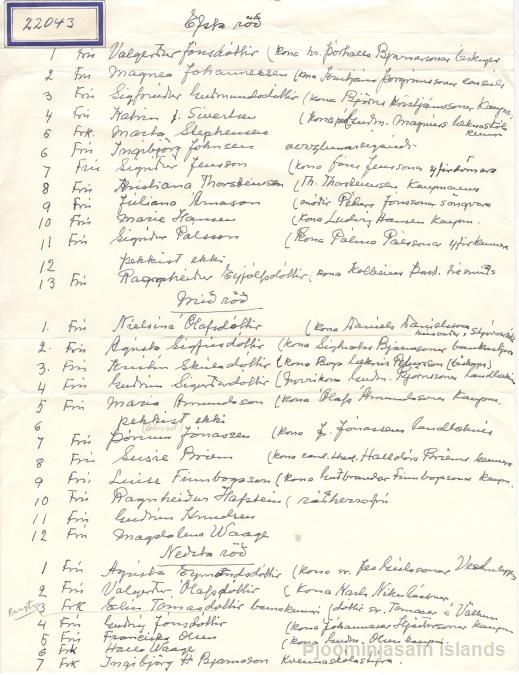 22043
Efsta röð
1 Frú Valgerður Jónsdóttir (kona hr. Þórhalls Bjarnarsonar biskups
2 Frú Magnea Johannessen (kona Kristjáns Þorgrímssonar consúls
3 Frú Sigfríður Guðmundsdóttir (kona Björns Kristjánssonar Kaupm.
4 Frú Katrin Sivertsen (kona Guðm. Magnúss læknaskóla kennara
5 Frk. Marta Stephensen
6 Frú Ingibjörg Johnsen verzlunareigandi
7 Frú Sigríður Jensson (kona Jóns Jenssonar yfirdómara
8 Frú Kristiana Thorsteinsen (Th. Thorsteinsen, Kaupmanns
9 Frú Júliana Árnason (móðir Péturs Jónssonar söngvara
10 Frú Marie Hansen (Kona Ludvig Hansen kaupm.
11 Frú Sigríður Pálsson (Kona Pálma Pálssonar yfirkennara
12 þekkist ekki
13 Frú Ragnheiður Eyjólfsdóttir, kona Kolbeins
Mið röð
1. Frú Nielsina Ólafsdóttir (kona Daníels Daníelssonar
2. Frú Ágústa Sigfúsdóttir (kona Sighvatar Bjarnasonar bankastjóra
3. Frú Kristín Skúladóttir (kona Boga læknis Péturssonar (biskups)
4 Frú Guðrún Sigurðardóttir (fyrri kona Guðm. Björnssonar landlæknis
5 Frú María Ámundason (kona Ólafs Ámundasonar kaupm.
6 þekkist ekki
7 Frú Þórunn Jónassen (kona J. Jónassens landlæknis
8 Frú Susie Briem (kona cand. Halldórs Briems kennara
9 Frú Luise Finnbogason (kona Guðbrandar Finnbogasonar kaupm.
10 Frú Ragnheiður Hafstein (ráðherrafrú
11 Frú Guðrún Knudsen
12 Frú Magdalena Waage
Neðsta röð
1 Frú Ágústa Eymundsdóttir (kona sr.
2 Frú Valgerður Ólafsdóttir (Kona Karls Nikulássonar
3 Frk Elin Tómasdóttir barnakennari (dóttir sr. Tómasar á Völlum
4 Frú Guðný Jónsdóttir (kona Jóhannesar kaupm
5 Frú Franciska Olsen (kona Guðm. Olsen kaupm.
6 Frk Halla Waage
7 Frk Ingibjörg H Bjarnason Kvennaskólastýra
Þjóðminjasafn Íslands